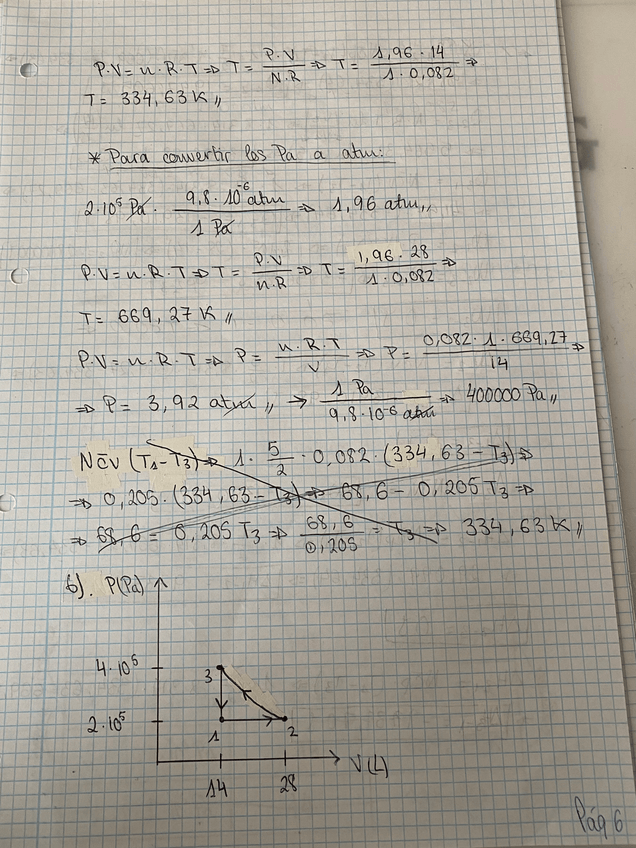 P.V = n.R.T ⇒ T = P.V / N.R ⇒ T = 1,96 · 14 / 1 · 0,082 ⇒
T = 334,63 K //
* Para convertir los Pa a atm:
2·10⁵ Pa · 9,8 · 10⁻⁶ atm / 1 Pa ⇒ 1,96 atm //
P.V = n.R.T ⇒ T = P.V / n.R ⇒ T = 1,96 · 28 / 1 · 0,082 ⇒
T = 669,27 K //
P.V = n.R.T ⇒ P = n.R.T / V ⇒ P = 0,082 · 1 · 669,27 / 14 ⇒
⇒ P = 3,92 atm // → 1 Pa / 9,8·10⁻⁶ atm ⇒ 400000 Pa //
N c̄v (T1 - T3) ⇒ 1 · 5/2 · 0,082 · (334,63 - T3) ⇒
⇒ 0,205 · (334,63 - T3) ⇒ 68,6 - 0,205 T3 ⇒
⇒ 68,6 = 0,205 T3 ⇒ 68,6 / 0,205 = T3 ⇒ 334,63 K //
b). P(Pa)
4·10⁵
3
2·10⁵
1 2
V(L)
14 28
Pág 6